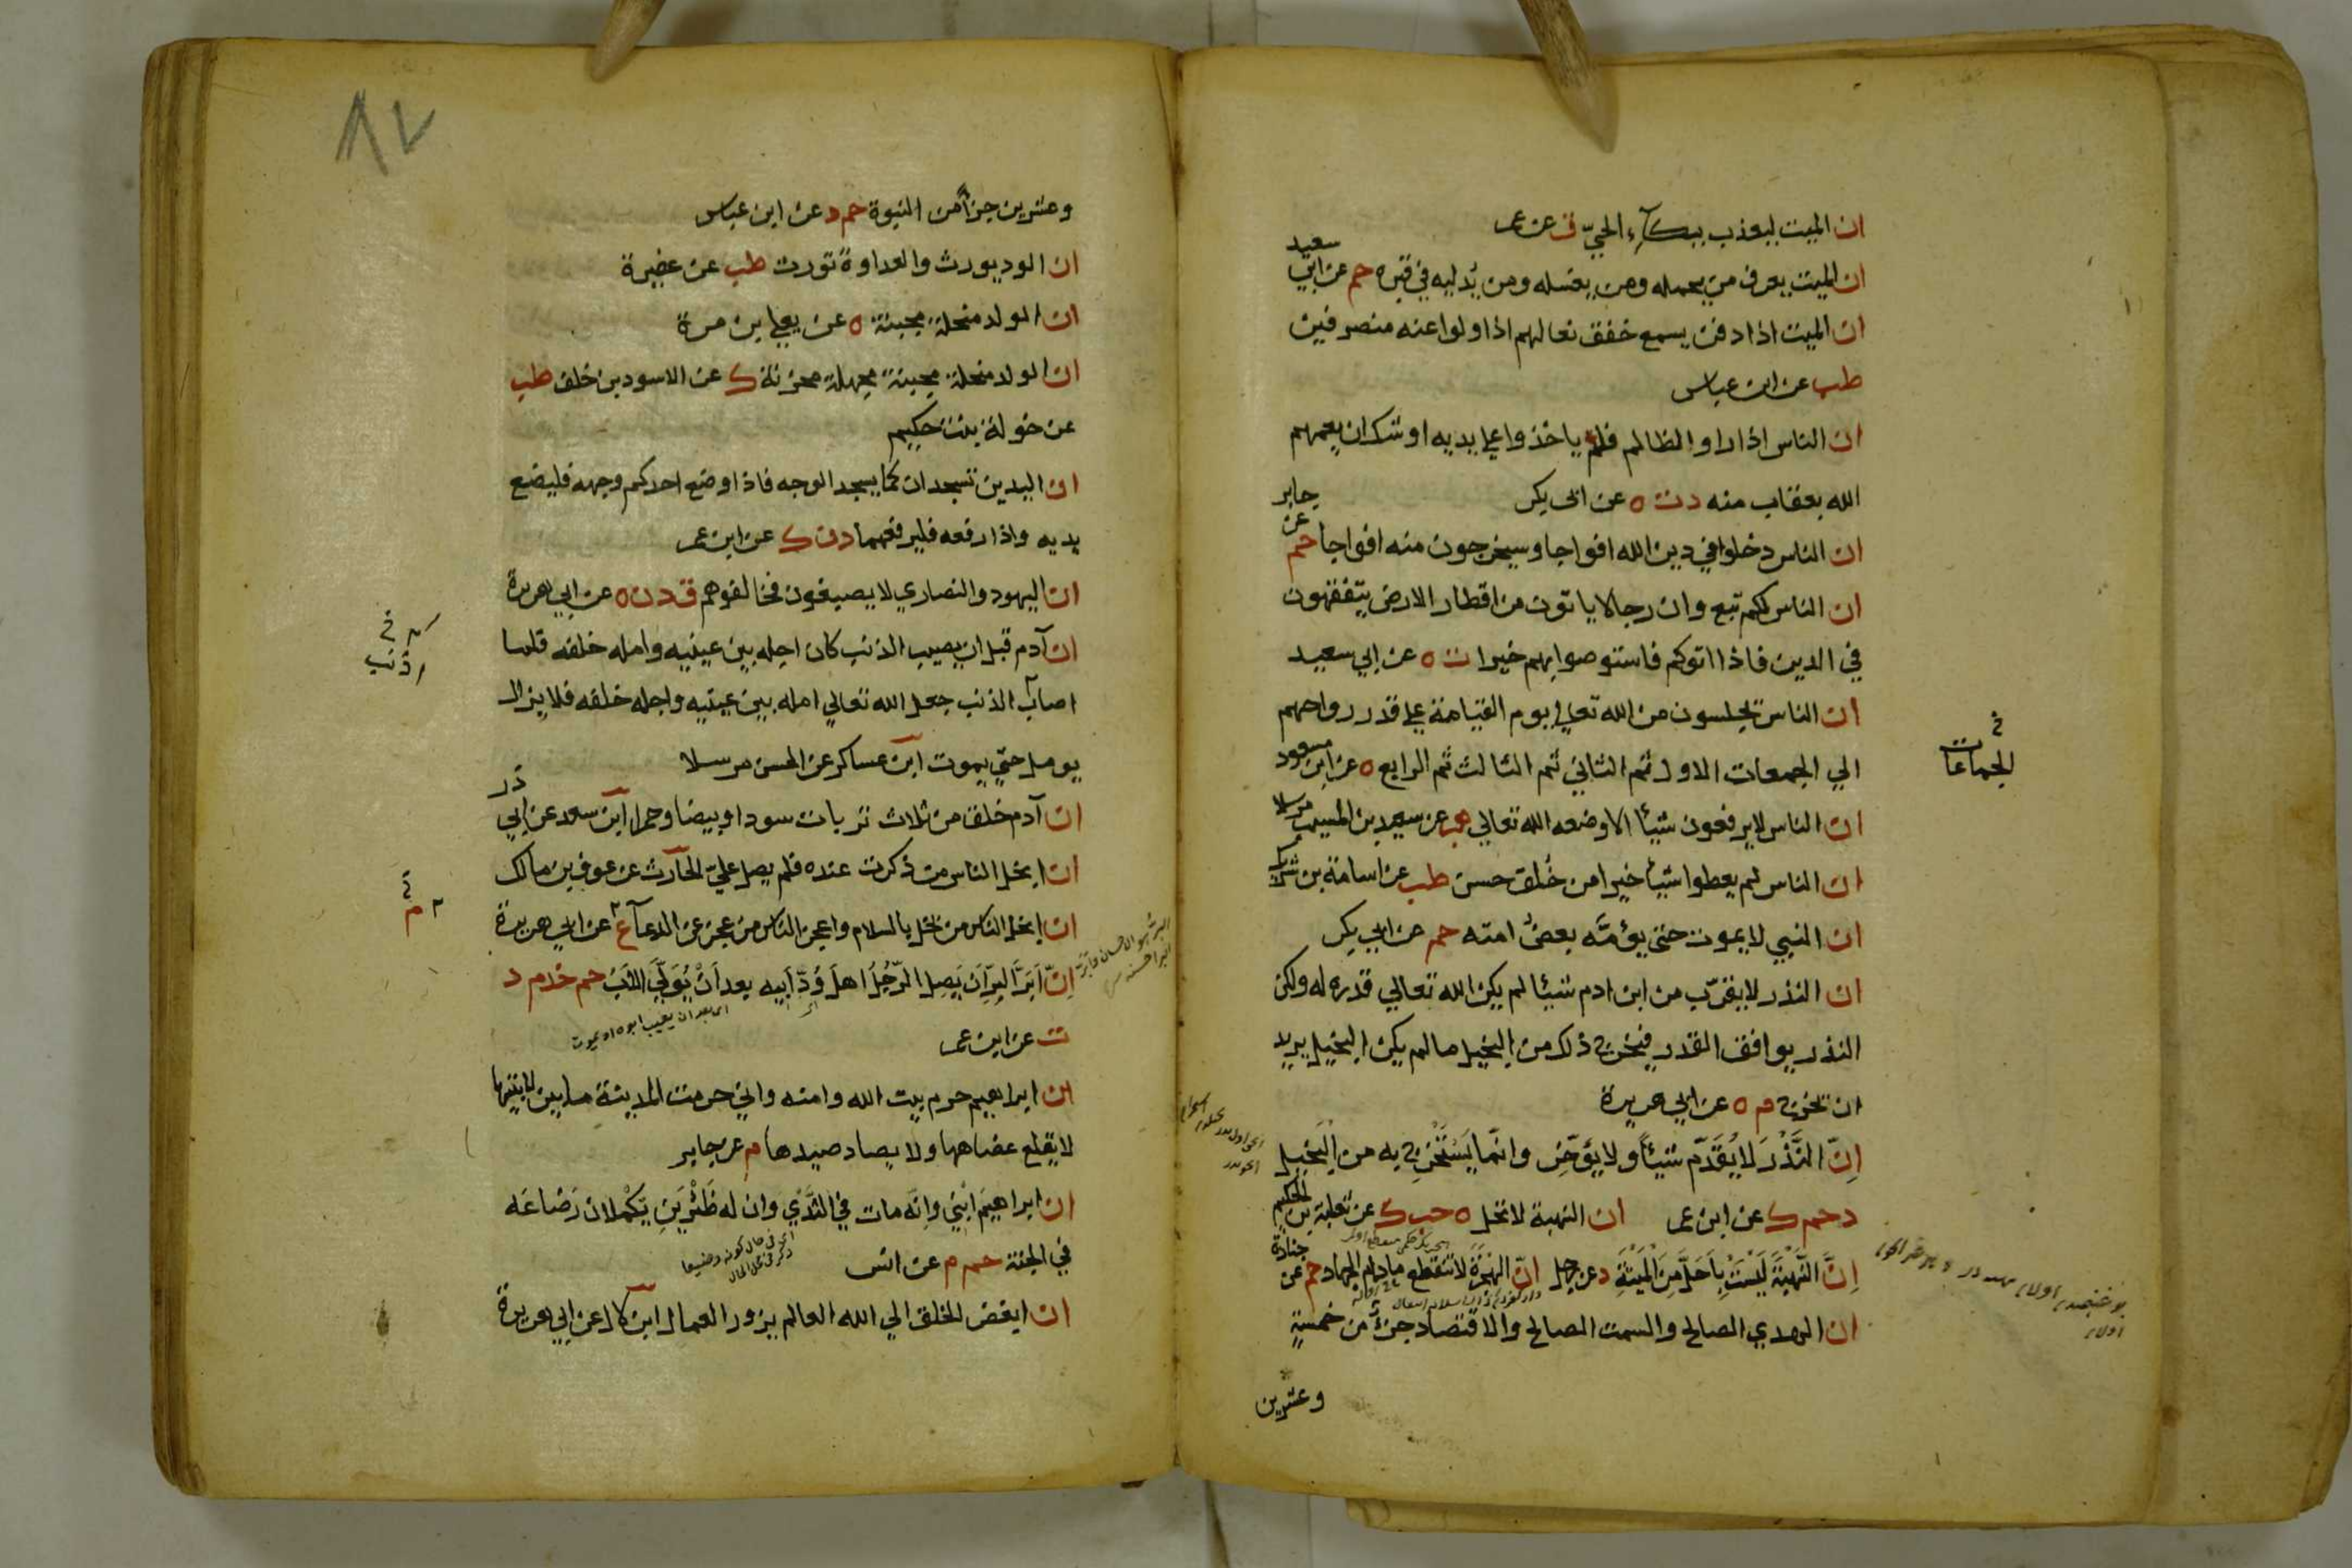 ان الميت ليعذب ببكآء الحيّ ق عن عمر
ان الميت يعرف من يحمله ومن يغسله ومن يدليه في قبره حم عن ابي سعيد
ان الميت اذا دفن يسمع خفق نعالهم اذا ولوا عنه منصرفين
طب عن ابن عباس
ان الناس اذا راوا الظالم فلم ياخذوا علي يديه اوشك ان يعمهم
الله بعقاب منه د ت ه عن ابي بكر
ان الناس دخلوا في دين الله افواجا وسيخرجون منه افواجا حم عن جابر
ان الناس لكم تبع وان رجالا ياتون من اقطار الارض يتفقهون
في الدين فاذا اتوكم فاستوصوا بهم خيرا ت ه عن ابي سعيد
ان الناس يجلسون من الله تعالي يوم القيامة علي قدر رواحهم
الي الجمعات الاول ثم الثاني ثم الثالث ثم الرابع ه عن ابن مسعود
الجماعات
ان الناس لا يرفعون شيئا الا وضعه الله تعالي هب عن سعيد بن المسيب مرسلا
ان الناس لم يعطوا شيئا خيرا من خُلق حسن طب عن اسامة بن شريك
ان النبي لا يموت حتي يؤمّه بعض امته حم عن ابي بكر
ان النذر لا يقرّب من ابن ادم شيئا لم يكن الله تعالي قدره له ولكن
النذر يوافق القدر فيخرج ذلك من البخيل ما لم يكن البخيل يريد
ان يخرج م ه عن ابي هريرة
اِنّ النَّذْرَ لا يُقَدّم شيئًا ولا يؤخّر وانّما يَسْتَخْرِج به من البَخيل
د حم ك عن ابن عمر ان النهبة لا تحل ه حب ك عن ثعلبة بن الحكيم
اِنَّ النُّهْبَةَ لَيْسَتْ بِاَحَلَّ مِنَ المَيْتَةِ د عن رجل انّ الهِجْرَةَ لا تنقطع مادام الجهاد حم عن جنادة
ان الهدي الصالح والسمت الصالح والاقتصاد جزء من خمسةٍ
وعشرين
وعشرين جزأ من النبوة حم د عن ابن عباس
ان الود يورث والعداوة تورث طب عن عفيرة
ان الولد مبخلة مجبنة ه عن يعلي بن مرة
ان الولد مبخلة مجبنة مجهلة محزنة ك عن الاسود بن خلف طب
عن خولة بنت حكيم
ان اليدين تسجدان كما يسجد الوجه فاذا وضع احدكم وجهه فليضع
يديه واذا رفعه فليرفعهما د ن ك عن ابن عمر
ان اليهود والنصاري لا يصبغون فخالفوهم ق د ن ه عن ابي هريرة
ان آدم قبل ان يصيب الذنب كان اجله بين عينيه وامله خلفه فلما
اصاب الذنب جعل الله تعالي امله بين عينيه واجله خلفه فلا يزال
يومل حتي يموت ابن عساكر عن الحسن مرسلا
ان آدم خلق من ثلاث تربات سودا وبيضا وحمرا ابن سعد عن ابي ذر
ان ابخل الناس من ذكرت عنده فلم يصل عليّ الحارث عن عوف بن مالك
ان ابخل الناس من بخل بالسلام واعجز الناس من عجز عن الدعآ ع عن ابي هريرة
اِنّ اَبَرَّ البِرّ اَن يَصِل الرّجُل اهلَ وُدّ اَبيه بعد اَنْ يُوَلِّيَ الاَب حم خد م د
اي بعد ان يغيب ابوه او يموت
ت عن ابن عمر
ان ابراهيم حرم بيت الله وامنه واني حرمت المدينة ما بين لابتيها
لا يقطع عضاهها ولا يصاد صيدها م عن جابر
ان ابراهيمَ ابني واِنّه مات في الثَّدْي وان له ظِئْرَيْنِ يَكْملان رَضَاعَه
في الجنة حم م عن انس
ان ابغض الخلق الي الله العالم يزور العمال ابن لال عن ابي هريرة